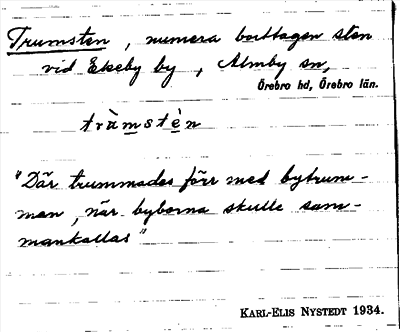 Trumsten, numera borttagen sten
vid Ekeby by, Almby sn,
Örebro hd, Örebro län.
trùmstèn
"Där trummades förr med bytrum-
man, när byborna skulle sam-
mankallas"
KARL-ELIS NYSTEDT 1934.